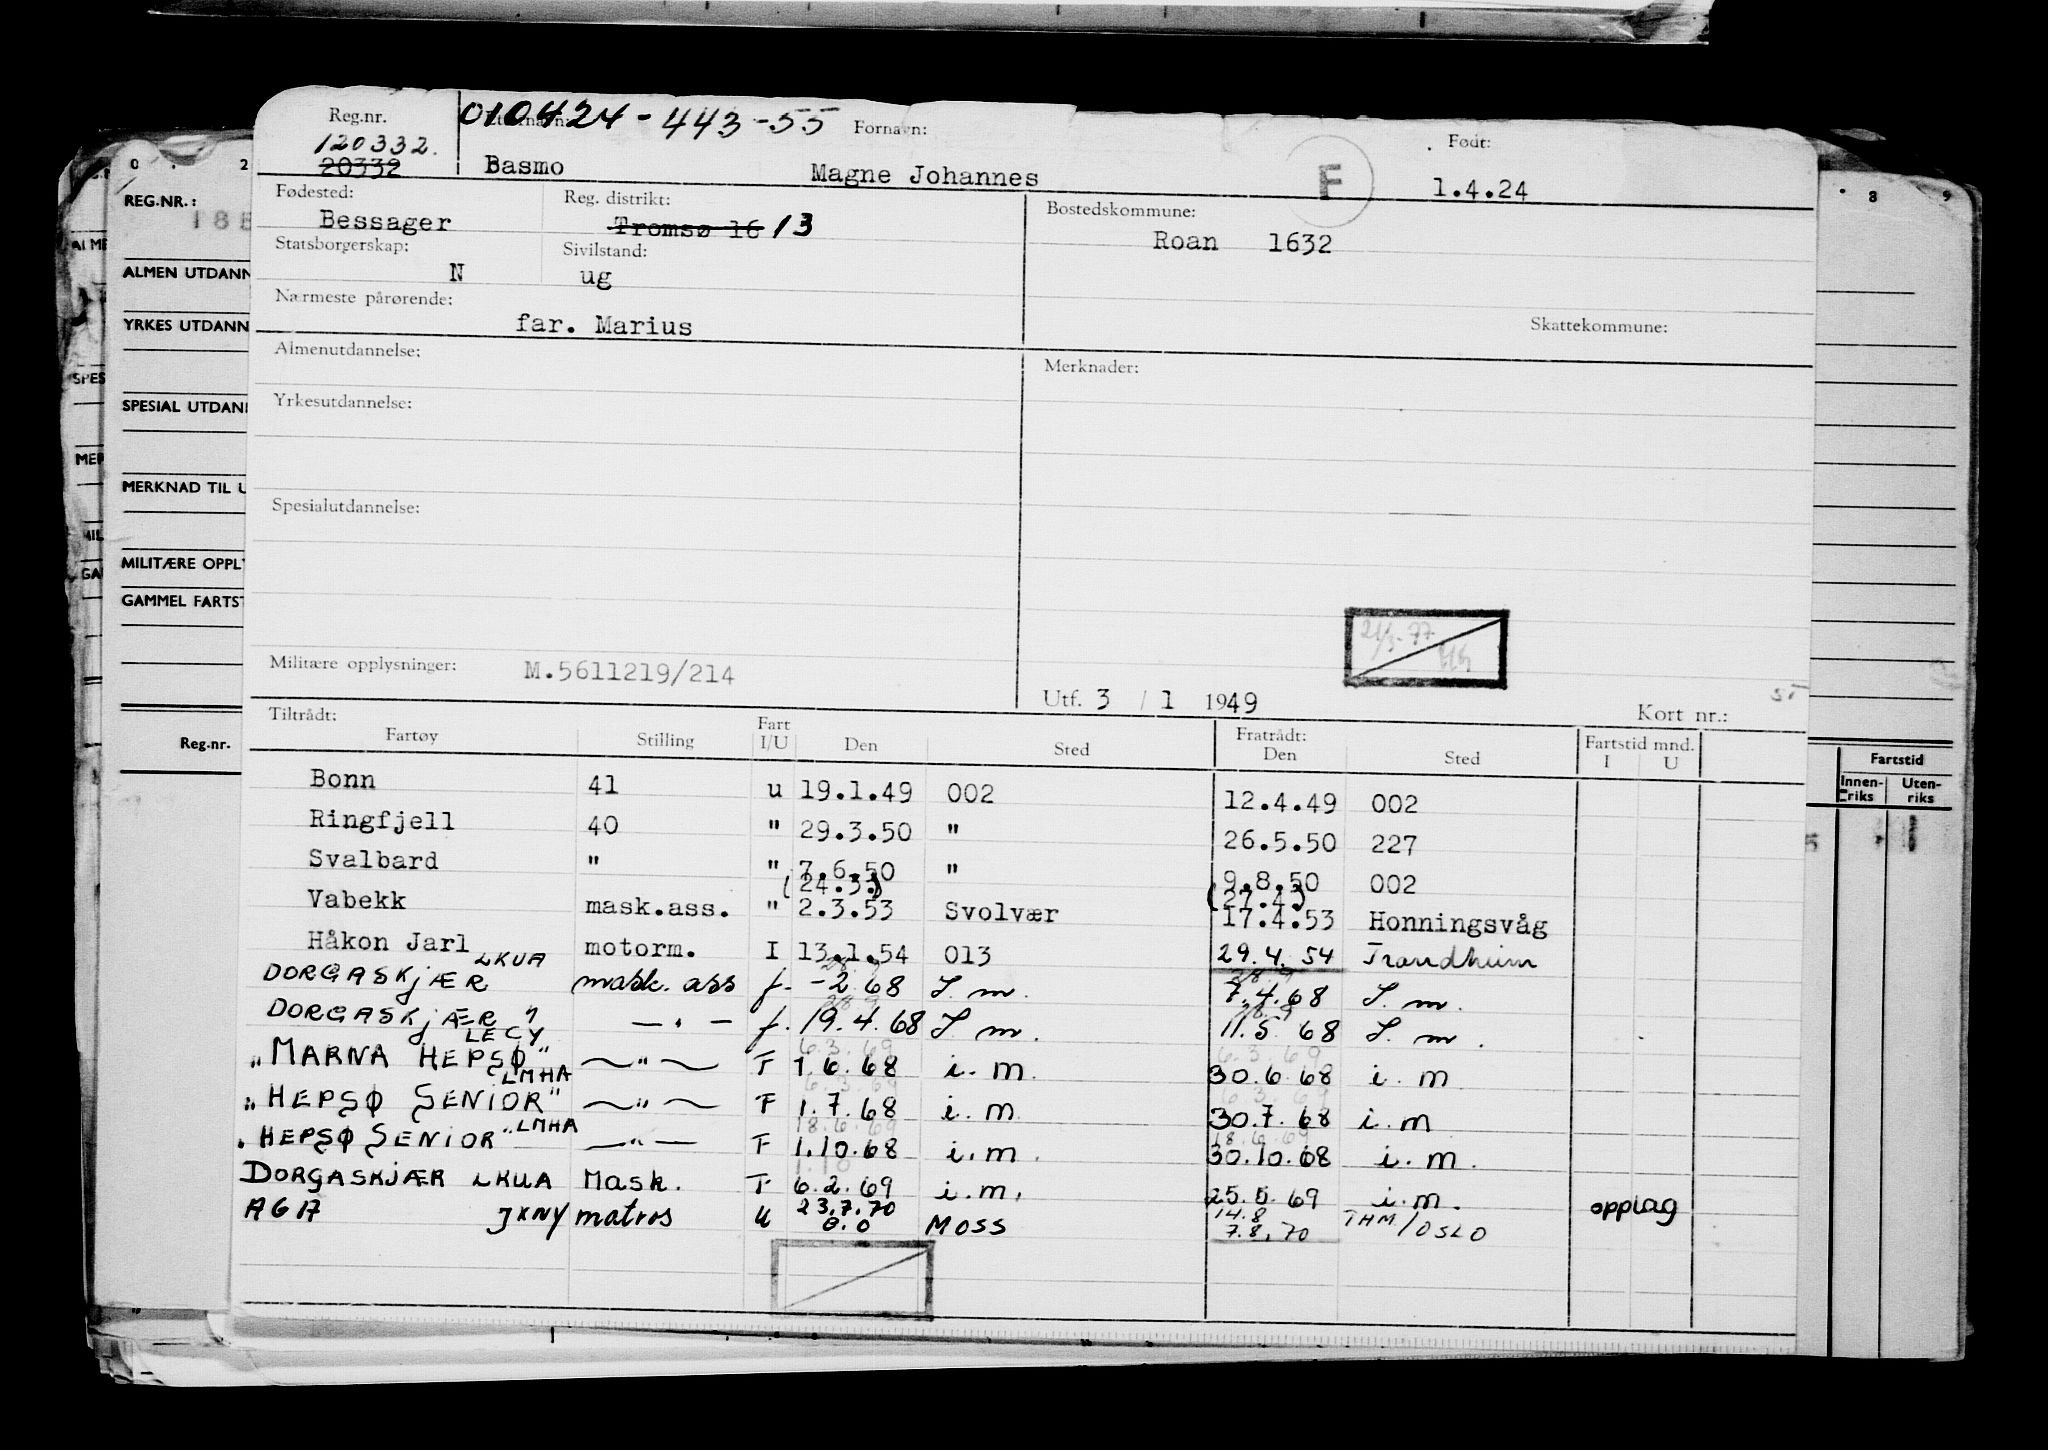 Reg.nr. Etternavn: 010424-443-55 Fornavn: Født:
120332.
20332 Basmo Magne Johannes F 1.4.24
Fødested: Reg. distrikt: Bostedskommune:
Bessager Tromsø 16 13 Roan 1632
Statsborgerskap: Sivilstand:
N ug
Nærmeste pårørende:
far. Marius Skattekommune:
Almenutdannelse: Merknader:
Yrkesutdannelse:
Spesialutdannelse:
21/3-77
Militære opplysninger: M.5611219/214
Utf. 3 / 1 1949 Kort nr.:
Tiltrådt: Fart Fratrådt: Fartstid mnd.
Fartøy Stilling I/U Den Sted Den Sted I U
Bonn 41 u 19.1.49 002 12.4.49 002
Ringfjell 40 " 29.3.50 " 26.5.50 227
Svalbard " " 7.6.50 " 9.8.50 002
(24.3.) (27.4.)
Vabekk mask.ass. " 2.3.53 Svolvær 17.4.53 Honningsvåg
Håkon Jarl motorm. I 13.1.54 013 29.4.54 Trondheim
LKUA 28.9 28.9
DORGASKJÆR mask. ass f. -2.68 S. m. 7.4.68 S. m.
28.9 28.9
DORGASKJÆR " — " — f. 19.4.68 S. m. 11.5.68 S. m.
LECY 6.3.69 6.3.69
"MARNA HEPSØ" — " — F 1.6.68 i. m. 30.6.68 i. m
LMHA 6.3.69 6.3.69
"HEPSØ SENIOR" — " — F 1.7.68 i. m 30.7.68 i. m
LMHA 18.6.69 18.6.69
"HEPSØ SENIOR" — " — F 1.10.68 i. m. 30.10.68 i. m.
1.10
DORGASKJÆR LKUA Mask. F 6.2.69 i. m. 25.5.69 i. m. opplag
23.7.70 14.8
AG 17 JXNY matros U 0.0 MOSS 7.8.70 THM/OSLO
REG.NR.:
ALMEN UTDANN
YRKES UTDANN
SPESIAL UTDANN
MERKNAD TIL U
MILITÆRE OPPLY
GAMMEL FARTST
Reg.nr.
Fartstid
Innen- Uten-
riks riks
8 9